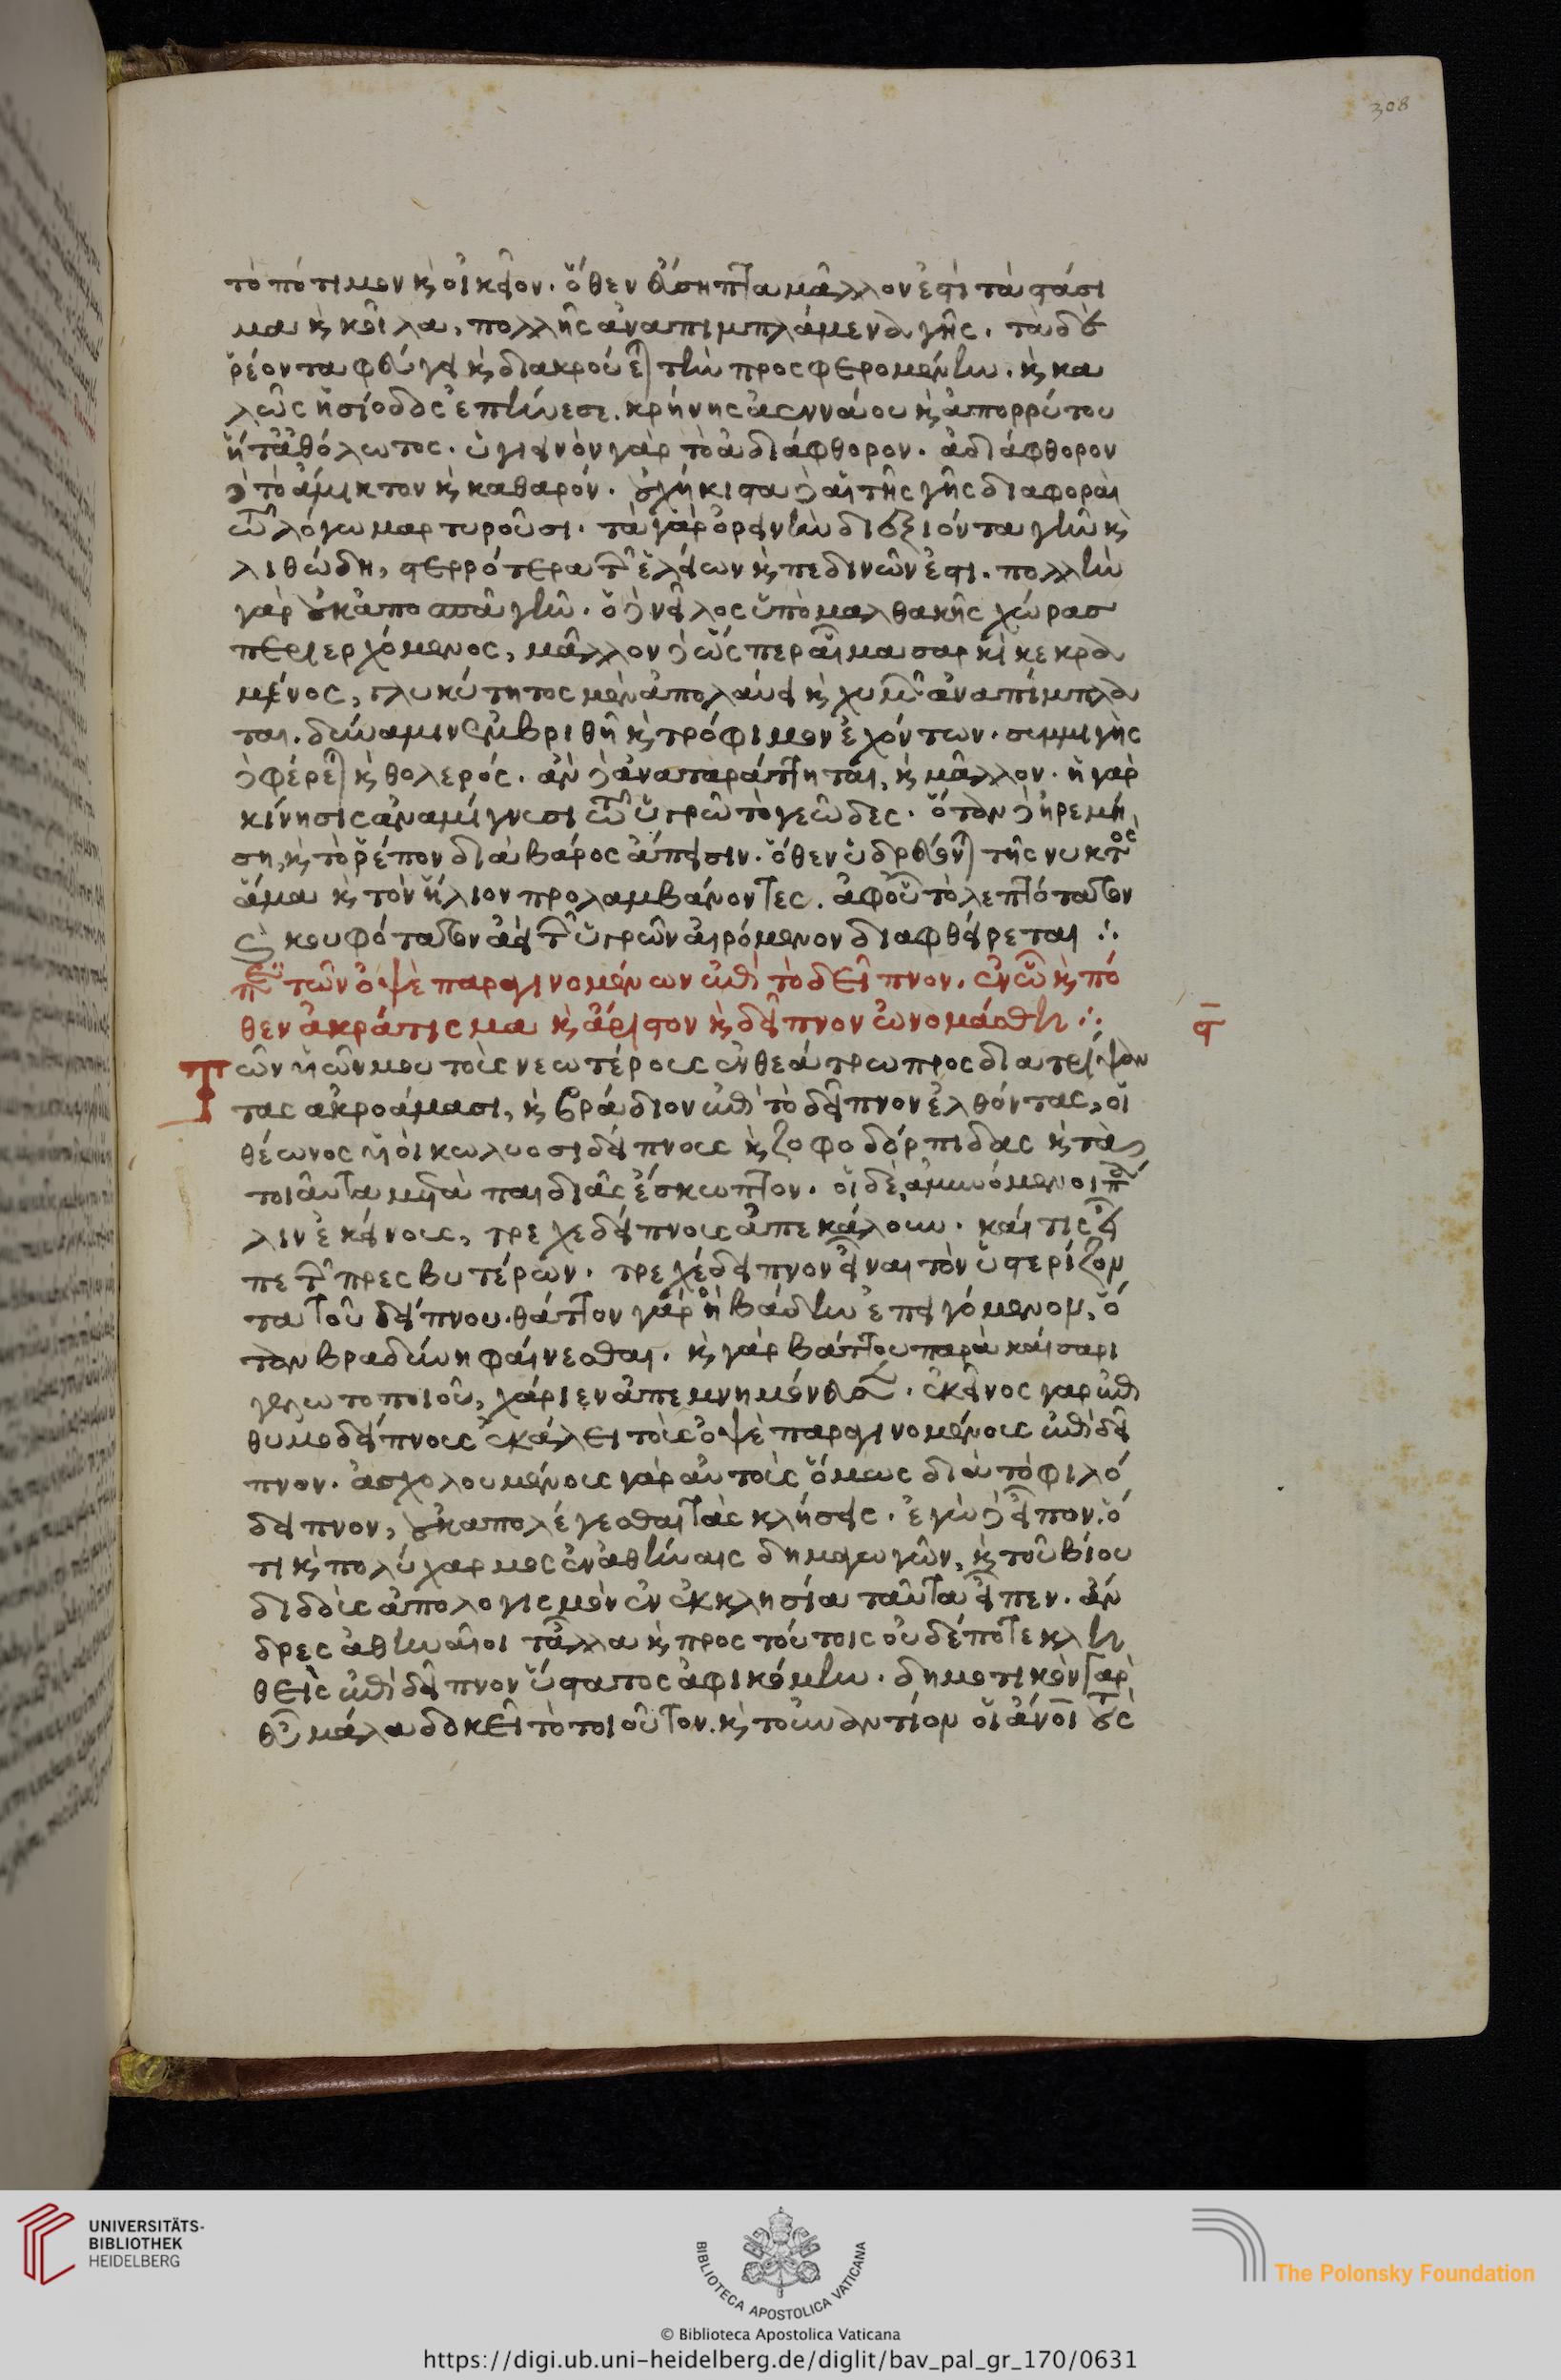 τὸ πότιμον καὶ οἰκεῖον. ὅθεν εὔσηπτα μᾶλλον ἐστὶ τὰ στάσι
μα καὶ κοῖλα, πολλῆς ἀναπιμπλάμενα γῆς. τὰ δὲ
ῥέοντα φεύγει καὶ διακρούεται τὴν προσφερομένην. καὶ κα
λῶς ἡσίοδος ἐπήνεσε. κρήνης ἀεννάου καὶ ἀπορρύτου
ἥτ' ἀθόλωτος. ὑγιεινὸν γὰρ τὸ ἀδιάφθορον. ἀδιάφθορον
δὲ τὸ ἄμικτον καὶ καθαρόν. οὐχ ἥκιστα δὲ αἱ τῆς γῆς διαφοραὶ
τῷ λόγω μαρτυροῦσι. τὰ γὰρ ὀρεινὴν διεξιόντα γῆν καὶ
λιθώδη, στερρότερα τῶν ἑλείων καὶ πεδινῶν ἐστι. πολλὴν
γὰρ οὐκ ἀποσπᾶ γῆν. ὁ δὲ νεῖλος ὑπὸ μαλθακῆς χώρας
περιερχόμενος, μᾶλλον δὲ ὥσπερ αἷμα σαρκὶ κεκρα
μένος, γλυκύτητος μὲν ἀπολαύει καὶ χυμῶν ἀναπίμπλα
ται. δύναμιν ἐμβριθῆ καὶ τρόφιμον ἐχόντων. συμμιγὴς
δὲ φέρεται καὶ θολερός. ἂν δὲ ἀναταράττηται, καὶ μᾶλλον. ἡ γὰρ
κίνησις ἀναμίγνυσι τῷ ὑγρῶ τὸ γεῶδες. ὅταν δὲ ἠρεμή
ση, καὶ τὸ ῥέπον διὰ βάρος ἄπεισιν. ὅθεν ὑδρεύονται τῆς νυκτὸς
ἅμα καὶ τὸν ἥλιον προλαμβάνοντες. ἀφ' οὗ τὸ λεπτότατον
καὶ κουφότατον ἀεὶ τῶν ὑγρῶν αἰρόμενον διαφθείρεται ∴
περὶ τῶν ὀψὲ παραγινομένων ἐπὶ τὸ δεῖπνον. ἐν ᾧ καὶ πό
θεν ἀκράτισμα καὶ ἄριστον καὶ δεῖπνον ὠνομάσθη ∴ ς
Τῶν ὑῶν μου τοὺς νεωτέρους ἐν θεάτρω προσδιατρίψαν
τας ἀκροάμασι, καὶ βράδιον ἐπὶ τὸ δεῖπνον ἐλθόντας, οἱ
θέωνος ὑοὶ κωλυσιδείπνους καὶ ζοφοδορπίδας καὶ τὰ
τοιαῦτα μετὰ παιδιᾶς ἔσκωπτον. οἱ δὲ ἀμυνόμενοι πά
λιν ἐκείνους, τρεχεδείπνους ἀπεκάλουν. καί τις εἶ
πε τῶν πρεσβυτέρων. τρεχέδειπνον εἶναι τὸν ὑστερίζον
τα τοῦ δείπνου. θᾶττον γὰρ ἢ βάδην ἐπειγόμενον, ὅ
ταν βραδύνη φαίνεσθαι. καὶ γὰρ βάττου παρὰ καίσαρι
γελωτοποιοῦ, χάριεν ἀπεμνημόνευσε. ἐκεῖνος γὰρ ἐπι
θυμοδείπνους ἐκάλει τοὺς ὀψὲ παραγινομένους ἐπὶ δεῖ
πνον. ἀσχολουμένους γὰρ αὐτοὺς ὅμως διὰ τὸ φιλό
δειπνον, οὐκ ἀπολέγεσθαι τὰς κλήσεις. ἐγὼ δὲ εἶπον, ὅ
τι καὶ πολύχαρμος ἐν ἀθήναις δημαγωγῶν, καὶ τοῦ βίου
διδοὺς ἀπολογισμὸν ἐν ἐκκλησία ταῦτα εἶπεν. ἄν
δρες ἀθηναῖοι τἆλλα καὶ πρὸς τούτοις οὐδέποτε κλη
θεὶς ἐπὶ δεῖπνον ὕστατος ἀφικόμην. δημοτικὸν γὰρ
εὖ μάλα δοκεῖ τὸ τοιοῦτον. καὶ τοὐναντίον οἱ ἄνοι τοὺς
308
UNIVERSITÄTS-
BIBLIOTHEK
HEIDELBERG
BIBLIOTECA APOSTOLICA VATICANA
The Polonsky Foundation
© Biblioteca Apostolica Vaticana
https://digi.ub.uni-heidelberg.de/diglit/bav_pal_gr_170/0631